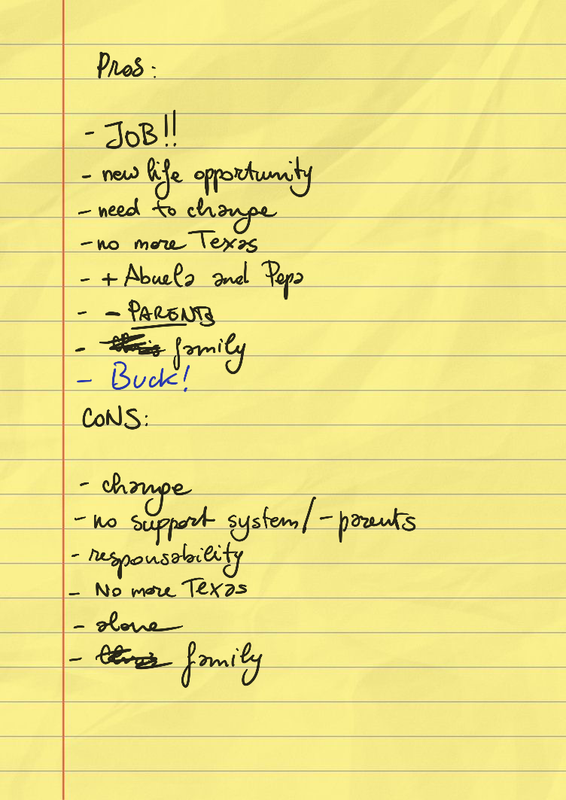 Pros:
- JOB!!
- new life opportunity
- need to change
- no more Texas
- + Abuela and Pepa
- - PARENTS
- family
- Buck!
CONS:
- change
- no support system/ - parents
- responsability
- No more Texas
- alone
- family